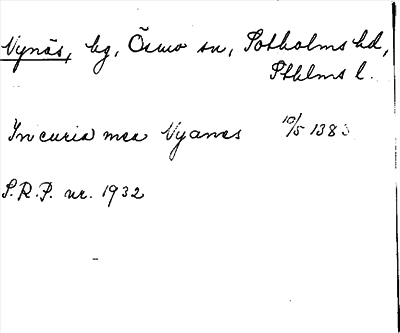 Vynäs, by, Ösmo sn, Sotholms hd,
Sthlms l.
In curia mea Vyanæs 10/5 1383
S.R.P. nr. 1932